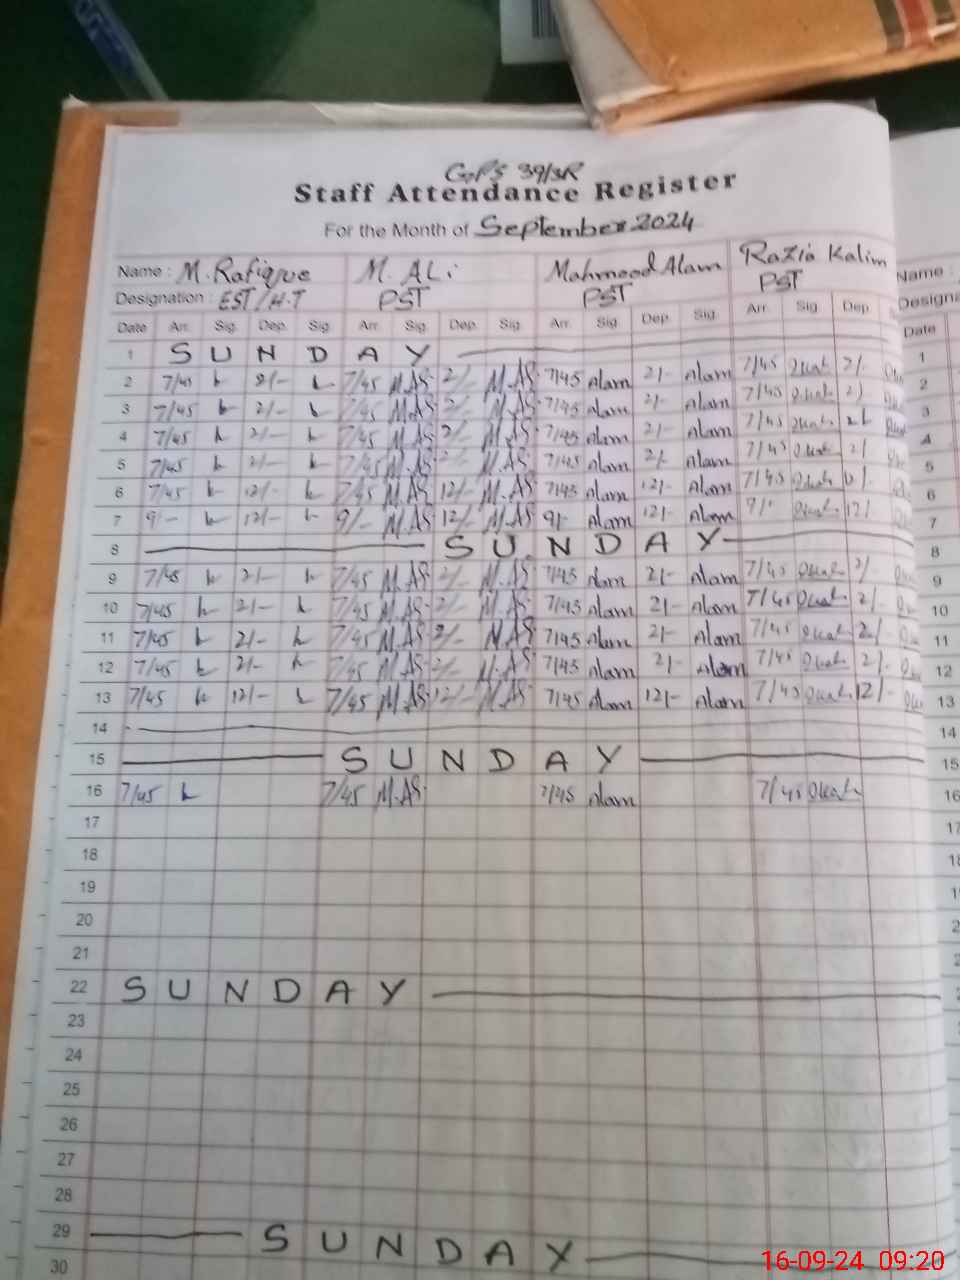 GPS 39/3R
Staff Attendance Register
For the Month of September 2024
Name : M. Rafique M. ALi Mahmood Alam Razia Kalim Name :
Designation : EST/H.T PST PST PST
Date Arr. Sig. Dep. Sig. Arr. Sig. Dep. Sig. Arr. Sig. Dep. Sig. Arr. Sig. Dep. Date
1 S U N D A Y 1
2 7/45 2/- 7/45 M.AS 2/- M.AS 7/45 Alam 2/- Alam 7/45 2/- 2
3 7/45 2/- 7/45 M.AS 2/- M.AS 7/45 Alam 2/- Alam 7/45 2/ 3
4 7/45 2/- 7/45 M.AS 2/- M.AS 7/45 Alam 2/- Alam 7/45 4
5 7/45 2/- 7/45 M.AS 2/- M.AS 7/45 Alam 2/- Alam 7/45 2/ 5
6 7/45 12/- 7/45 M.AS 12/- M.AS 7/45 Alam 12/- Alam 7/45 6
7 9/- 12/- 9/- M.AS 12/- M.AS 9/- Alam 12/- Alam 12/ 7
8 S U N D A Y 8
9 7/45 2/- 7/45 M.AS 2/- M.AS 7/45 Alam 2/- Alam 7/45 2/ 9
10 7/45 2/- 7/45 M.AS 2/- M.AS 7/45 Alam 2/- Alam 7/45 2/- 10
11 7/45 2/- 7/45 M.AS 2/- M.AS 7/45 Alam 2/- Alam 7/45 2/- 11
12 7/45 2/- 7/45 M.AS 2/- M.AS 7/45 Alam 2/- Alam 7/45 2/- 12
13 7/45 12/- 7/45 M.AS 12/- M.AS 7/45 Alam 12/- Alam 7/45 12/- 13
14 14
15 S U N D A Y 15
16 7/45 7/45 M.AS 7/45 Alam 7/45 16
17
18
19
20
21
22 S U N D A Y
23
24
25
26
27
28
29 S U N D A Y
30
16-09-24 09:20